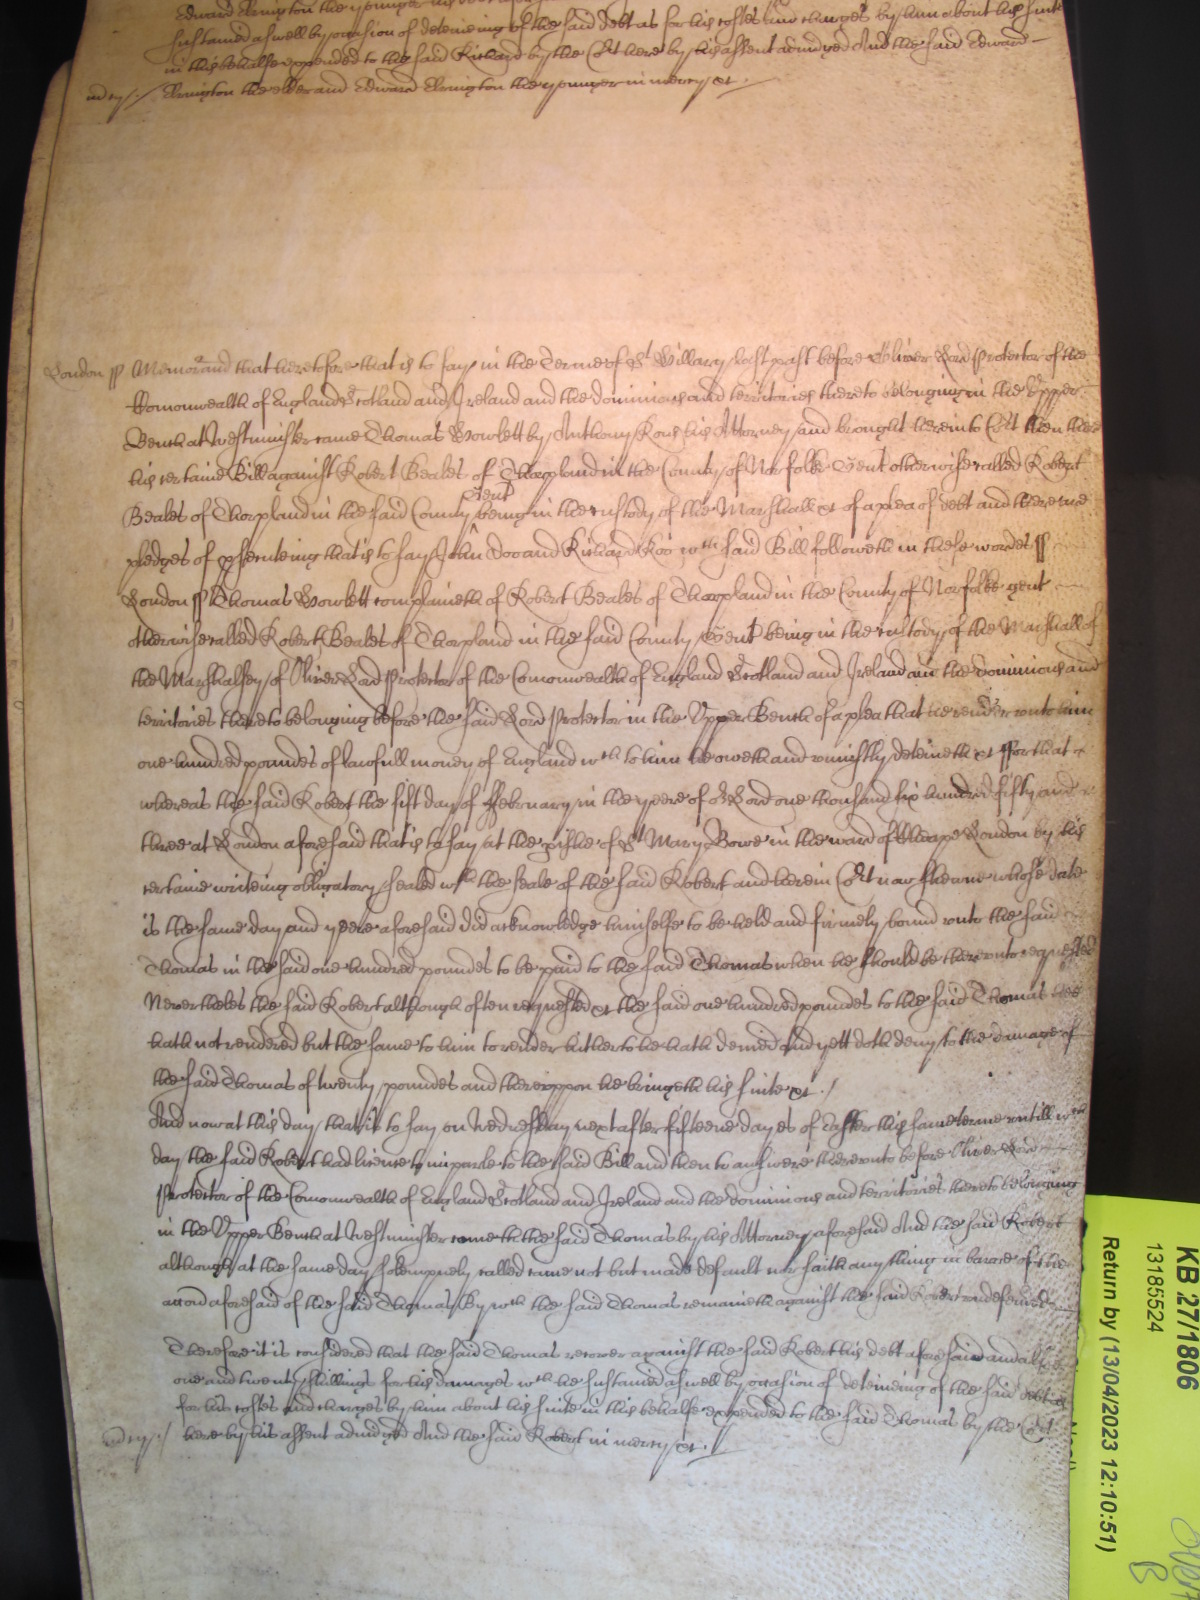 Edward Elrington the younger his
sustained aswell by occasion of deteineing of the said debt as for his costes and charges by him about his suite
in this behalfe expended to the said Richard by the Cort here by his assent adiudged And the said Edward
mercy / Elrington the elder and Edward Elrington the younger in mercy &c.
London ss Memorand that heretofore that is to say in the Terme of St Hillary last past before Oliver Lord Protector of the
Comonwealth of England Scotland and Ireland and the dominions and territories thereto belonging in the Upper
Bench at Westminster came Thomas Howlett by Anthony his Attorney and brought here into Cort then there
his certaine Bill against Robert Beales of Thorpland in the County of Norfolk Gent otherwise called Robert
Beales of Thorpland in the said County Gent being in the custody of the Marshall &c of a plea of debt and there are
pledges of psecuteing that is to say John Doo and Richard Roo wch said Bill followeth in these wordes ss
London ss Thomas Howlett complaineth of Robert Beales of Thorpland in the County of Norfolke gent
otherwise called Robert Beales of Thorpland in the said County Gent being in the custody of the Marshall of
the Marshalsey of Oliver Lord Protector of the Comonwealth of England Scotland and Ireland and the dominions and
territories thereto belonging before the said Lord Protector in the Upper Bench of a plea that he render unto him
one hundred poundes of lawfull money of England wch to him he oweth and uniustly deteineth &c For that
whereas the said Robert the first day of February in the yeere of or Lord one thousand six hundred fifty and
three at London aforesaid that is to say at the pishe of St Mary Bowe in the ward of Cheape London by his
certaine writeing obligatory sealed wth the seale of the said Robert and here in Cort now shewne whose date
is the same day and yeere aforesaid did acknowledge himselfe to be held and firmely bound unto the said
Thomas in the said one hundred poundes to be paid to the said Thomas when he should be thereunto requested
Neverthelesse the said Robert although often requested &c the said one hundred poundes to the said Thomas
hath not rendered but the same to him to render hitherto he hath denied and yett doth deny to the damage of
the said Thomas of twenty poundes and thereuppon he bringeth his suite &c. /
And now at this day that is to say on Wednesday next after fifteene dayes of Easter this same terme untill wch
day the said Robert had licence to imparle to the said Bill and then to answere thereunto before Oliver Lord
Protector of the Comonwealth of England Scotland and Ireland and the dominions and territories thereto belonging
in the Upper Bench at Westminster cometh the said Thomas by his Attorney aforesaid And the said Robert
although at the same day solempnely called came not but made default nor saith any thing in barre of the
accion aforesaid of the said Thomas By wch the said Thomas remaineth against the said Robert undefended
Therefore it is considered that the said Thomas recover against the said Robert his debt aforesaid and alsoe
one and twenty shillings for his damages wch he sustained aswell by occasion of deteineing of the said debt as
for his costes and charges by him about his suite in this behalfe expended to the said Thomas by the Cort
mercy / here by his assent adiudged And the said Robert in mercy &c.
KB 27/1806
13185524
Return by (13/04/2023 12:10:51)